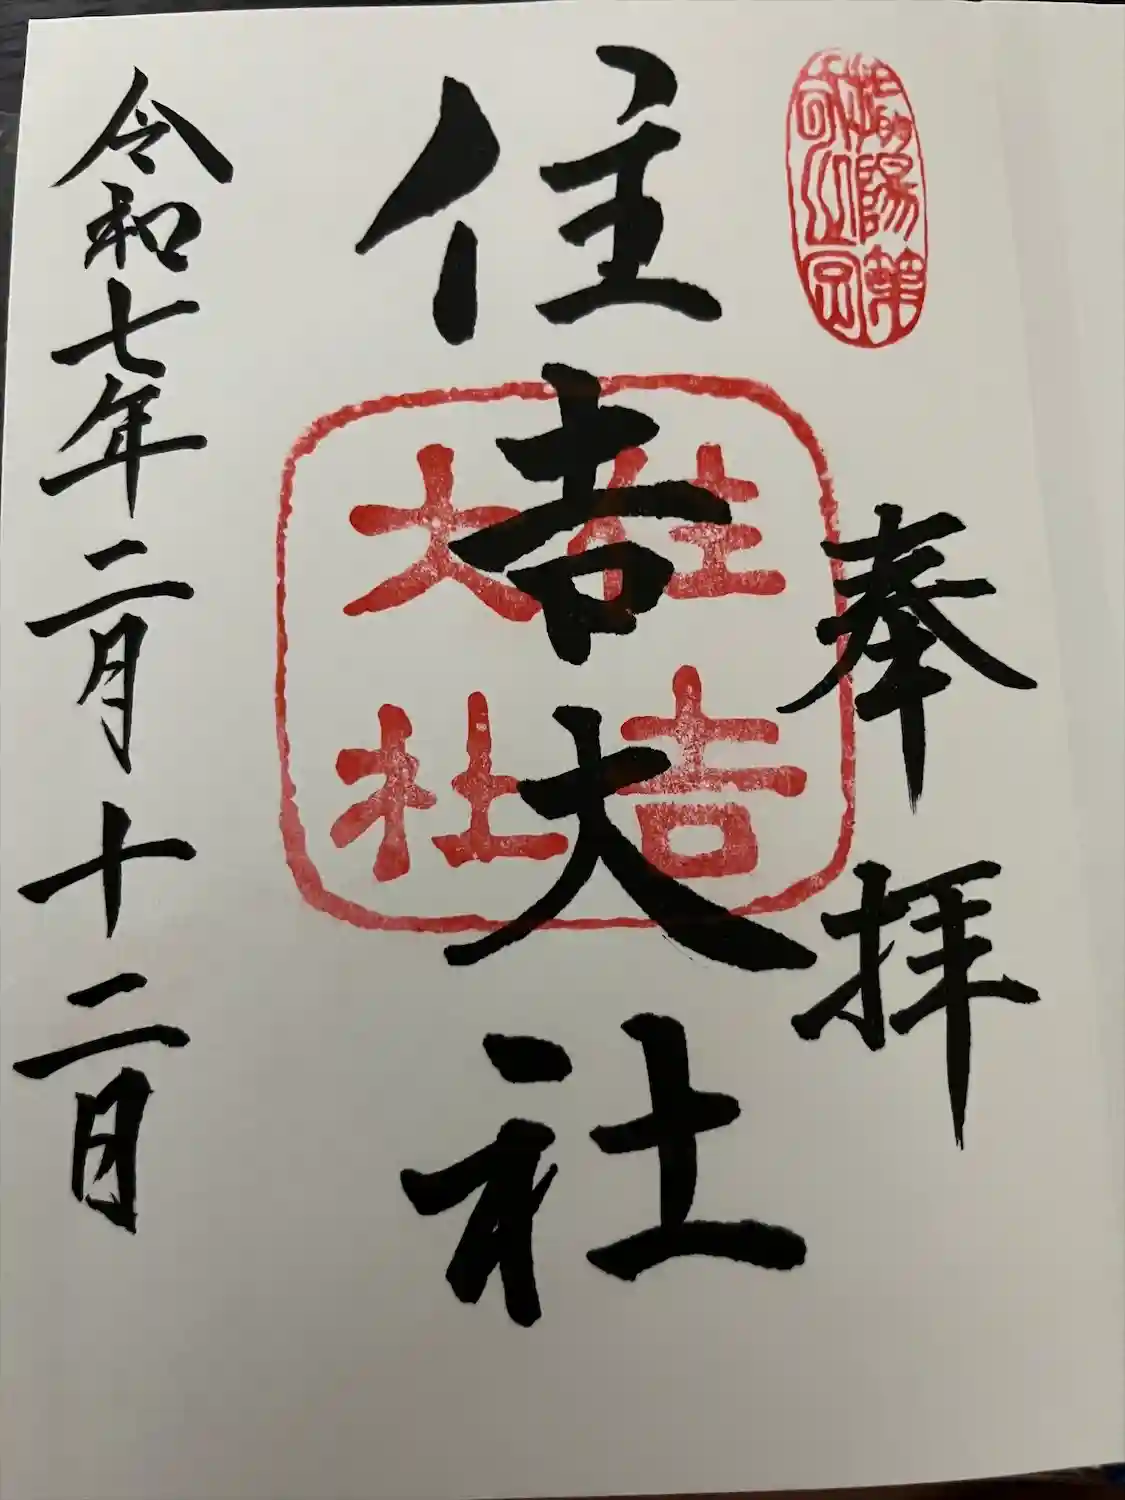 奉拝
住吉大社
住吉
大社
令和七年二月十二日